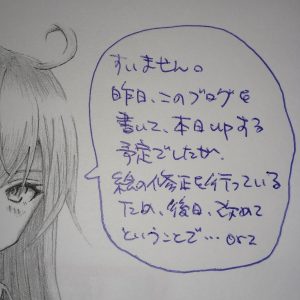 すいません。
昨日、このブログを
書いて、本日upする
予定でしたが、
絵の修正を行っている
ため、後日、改めて
ということで…orz